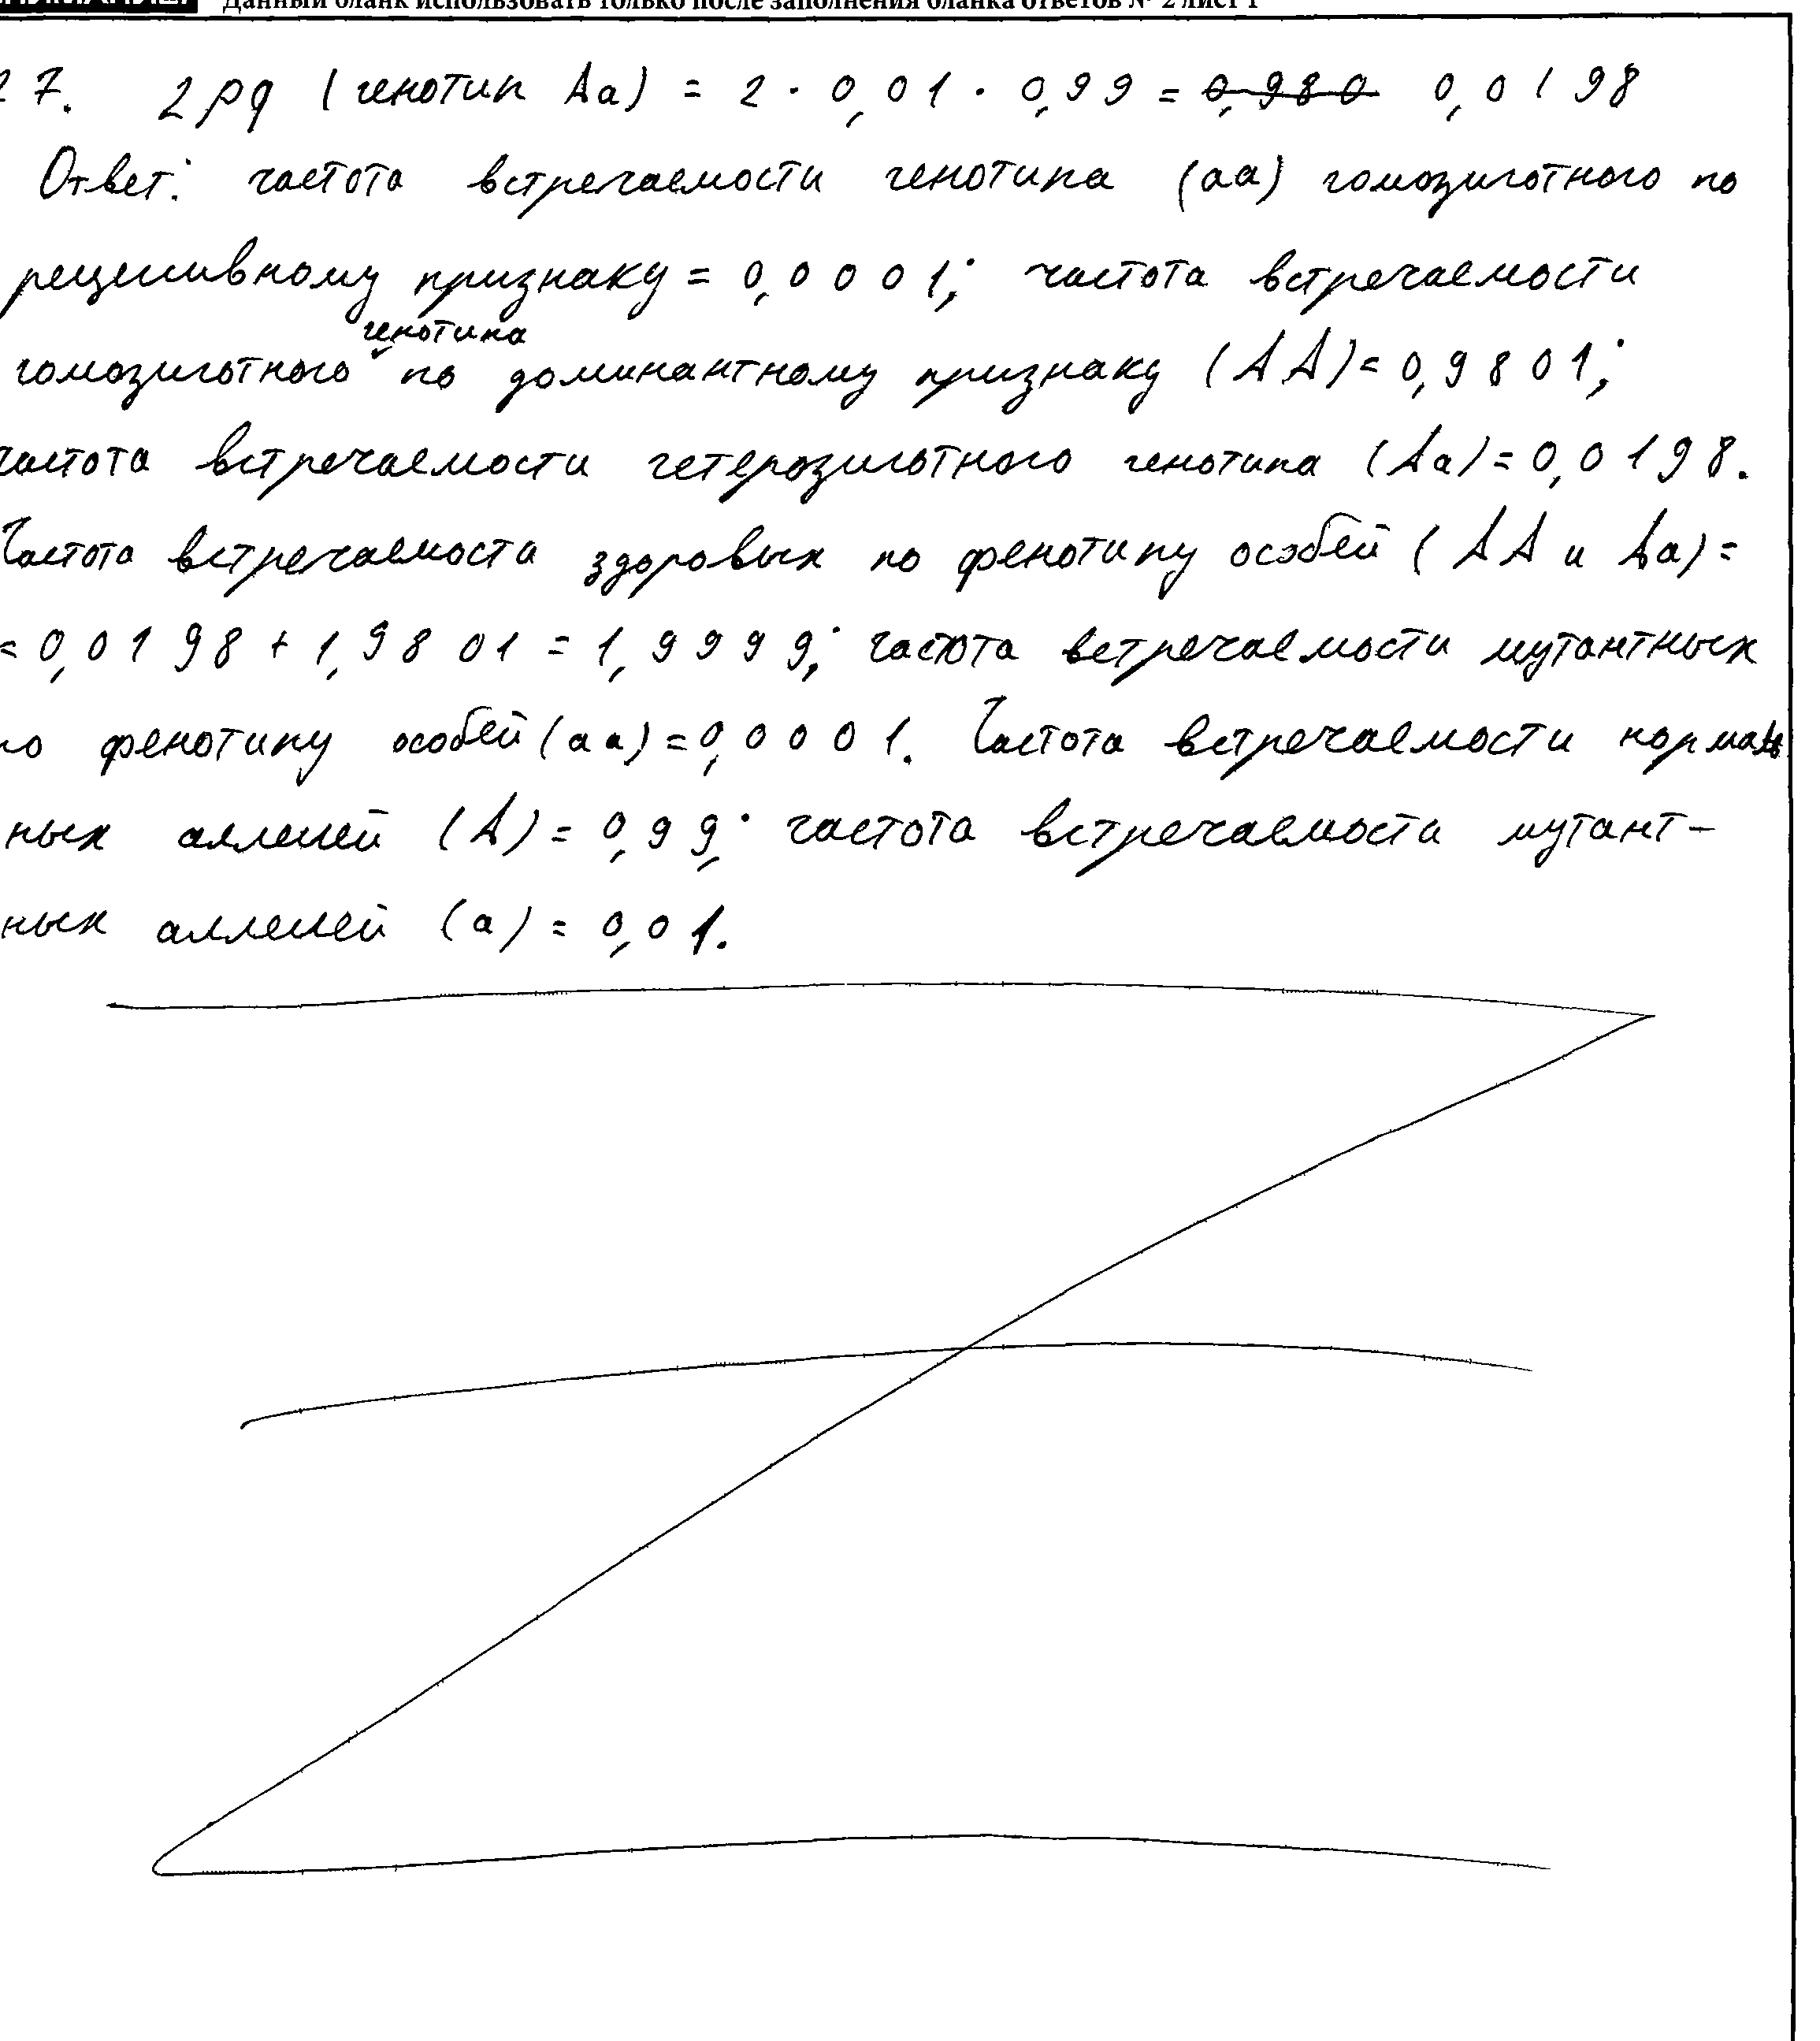 Данный бланк использовать только после заполнения бланка ответов № 2 лист 1
27. 2pq (генотип Aa) = 2 · 0,01 · 0,99 = 0,980 0,0198
Ответ: частота встречаемости генотипа (aa) гомозиготного по
рецессивному признаку = 0,0001; частота встречаемости
генотипа
гомозиготного по доминантному признаку (AA) = 0,9801;
частота встречаемости гетерозиготного генотипа (Aa) = 0,0198.
Частота встречаемости здоровых по фенотипу особей (AA и Aa) =
= 0,0198 + 1,9801 = 1,9999; частота встречаемости мутантных
по фенотипу особей (aa) = 0,0001. Частота встречаемости нормаль
ных аллелей (A) = 0,99; частота встречаемости мутант-
ных аллелей (a) = 0,01.